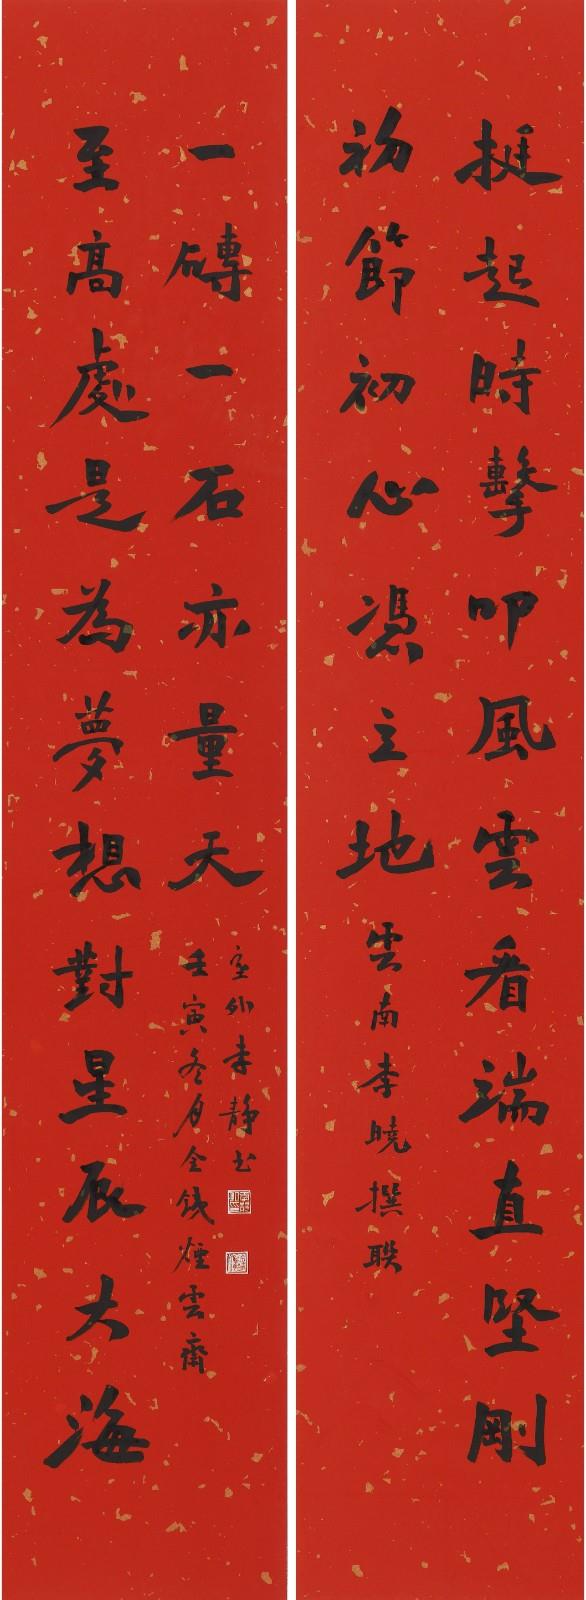 挺起時擊叩風雲看端直堅剛
初節初心憑立地
雲南李曉撰聯
至高處是為夢想對星辰大海
一磚一石亦量天
塞外李靜書
壬寅冬月金煙雲齋